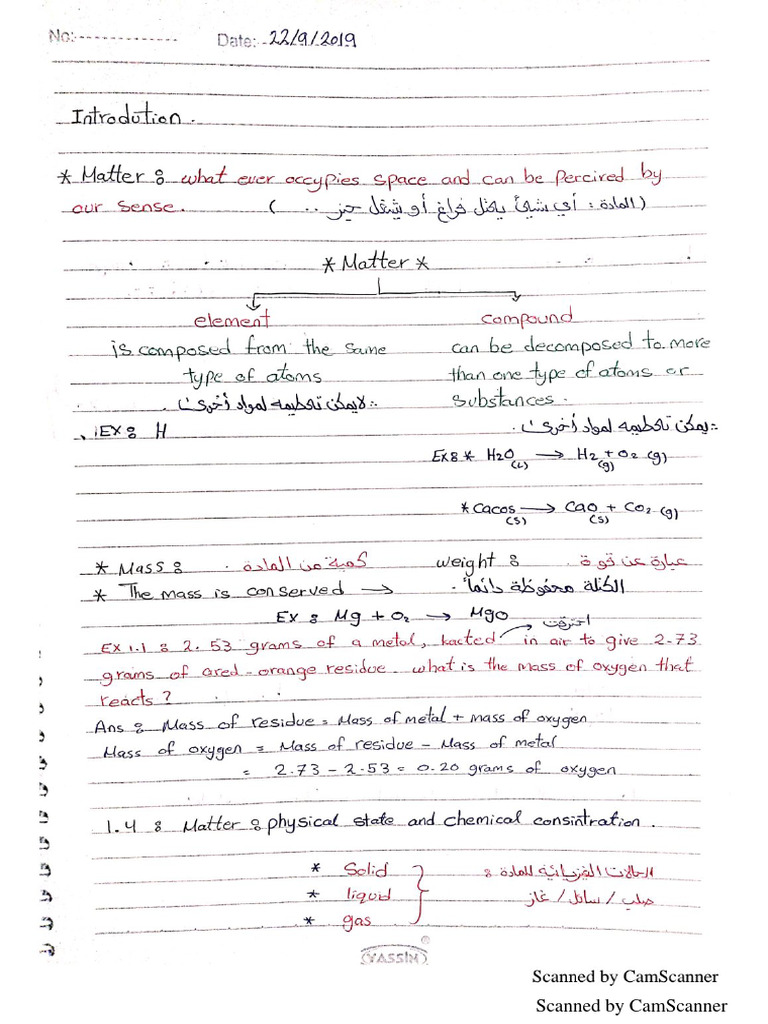 No:-------------- Date:- 22/9/2019
Introdution.
* Matter : what ever occypies space and can be percired by
our sense. ( المادة : أي شيئ يحتل فراغ أو يشغل حيز .. )
* Matter *
element compound
is composed from the same can be decomposed to more
type of atoms than one type of atoms or
∴ لا يمكن تحطيمه لمواد أخرى substances.
EX : H ∴ يمكن تحطيمه لمواد أخرى .
EX : * H2O (L) → H2 (g) + O2 (g)
* Cacos (s) → CaO (s) + CO2 (g)
* Mass : كمية من المادة . weight : عبارة عن قوة .
* The mass is conserved → الكتلة محفوظة دائماً .
EX : Mg + O2 → MgO
احترقت
EX 1.1 : 2.53 grams of a metal, kacted in air to give 2.73
grams of ared-orange residue. what is the mass of oxygen that
reacts ?
Ans : Mass of residue = Mass of metal + mass of oxygen
Mass of oxygen = Mass of residue - Mass of metal
= 2.73 - 2.53 = 0.20 grams of oxygen
1.4 : Matter : physical state and chemical consintration .
* Solid الحالات الفيزيائية للمادة :
* liquid صلب / سائل / غاز
* gas
YASSIN
Scanned by CamScanner
Scanned by CamScanner